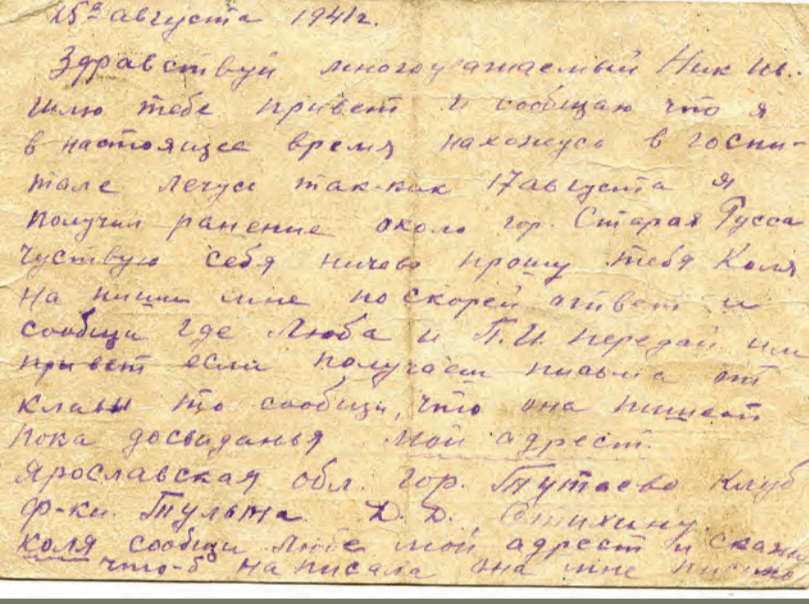 25го августа 1941г.
Здравствуй многоуважаемый Ник Ив.
шлю тебе привет и сообщаю что я
в настоящее время нахожусь в госпи-
тале лечусь так-как 17 августа я
получил ранение около гор. Старая Русса
чуствую себя ничево прошу тебя Коля
на пиши мне поскорей ответ и
сообщи где Люба и П.И. передай им
привет если получаеш письма от
клавы то сообщи, что она пишет
пока досвиданья мой адрест
Ярославская обл. гор. Тутаево Клуб
ф-ки. Тульма. Д. Д. Стихину.
коля сообщи любе мой адрест и скажи
что-б на писала она мне письмо